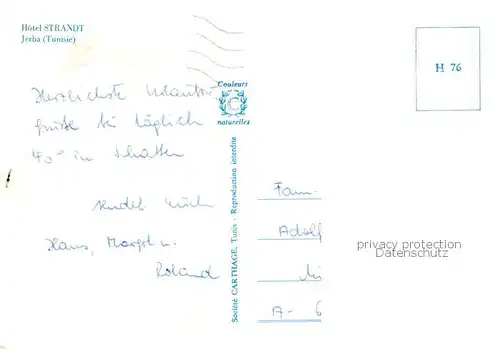 Hôtel STRANDT
Jerba (Tunisie)
Herzlichste Urlaubs-
grüße bei täglich
40° im Schatten
sendet Euch
Hans, Margot u.
Roland
Couleurs
naturelles
Société CARTHAGE, Tunis - Reproduction interdite
H 76
Fam.
Adolf
A- 6
privacy protection
Datenschutz